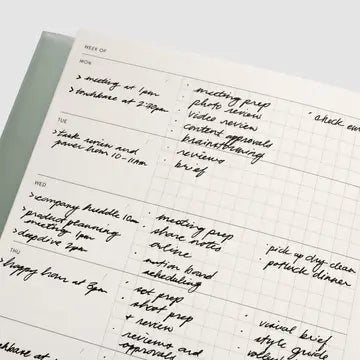 WEEK OF
MON
> meeting at 1pm
> touchbase at 2:30pm
· meeting prep
· photo review
· video review
· content approvals
· brainstorming
· check
TUE
> task review and
power hour 10-11am
· reviews
· brief
WED
> company huddle 10am
> product planning
meeting 1pm
> deepdive 2pm
· meeting prep
· share notes
· online
· notion board
scheduling
· pick up dry clean
· potluck dinner
THU
> happy hour at 8pm
at
· set prep
· shoot prep
+ review
· reviews and
approvals
· visual brief
· style guide